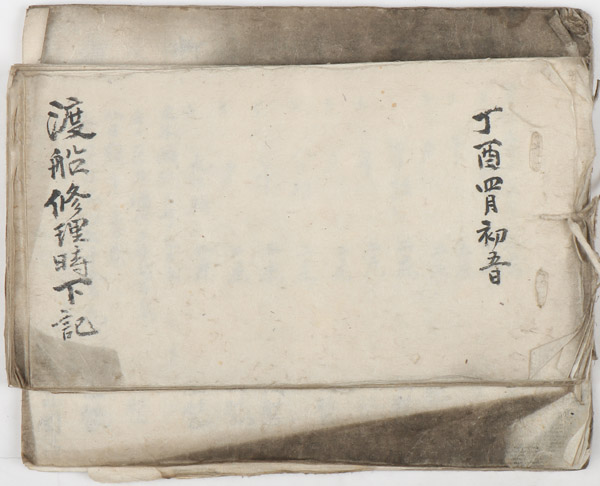 丁酉四月初五日
渡船修理時下記